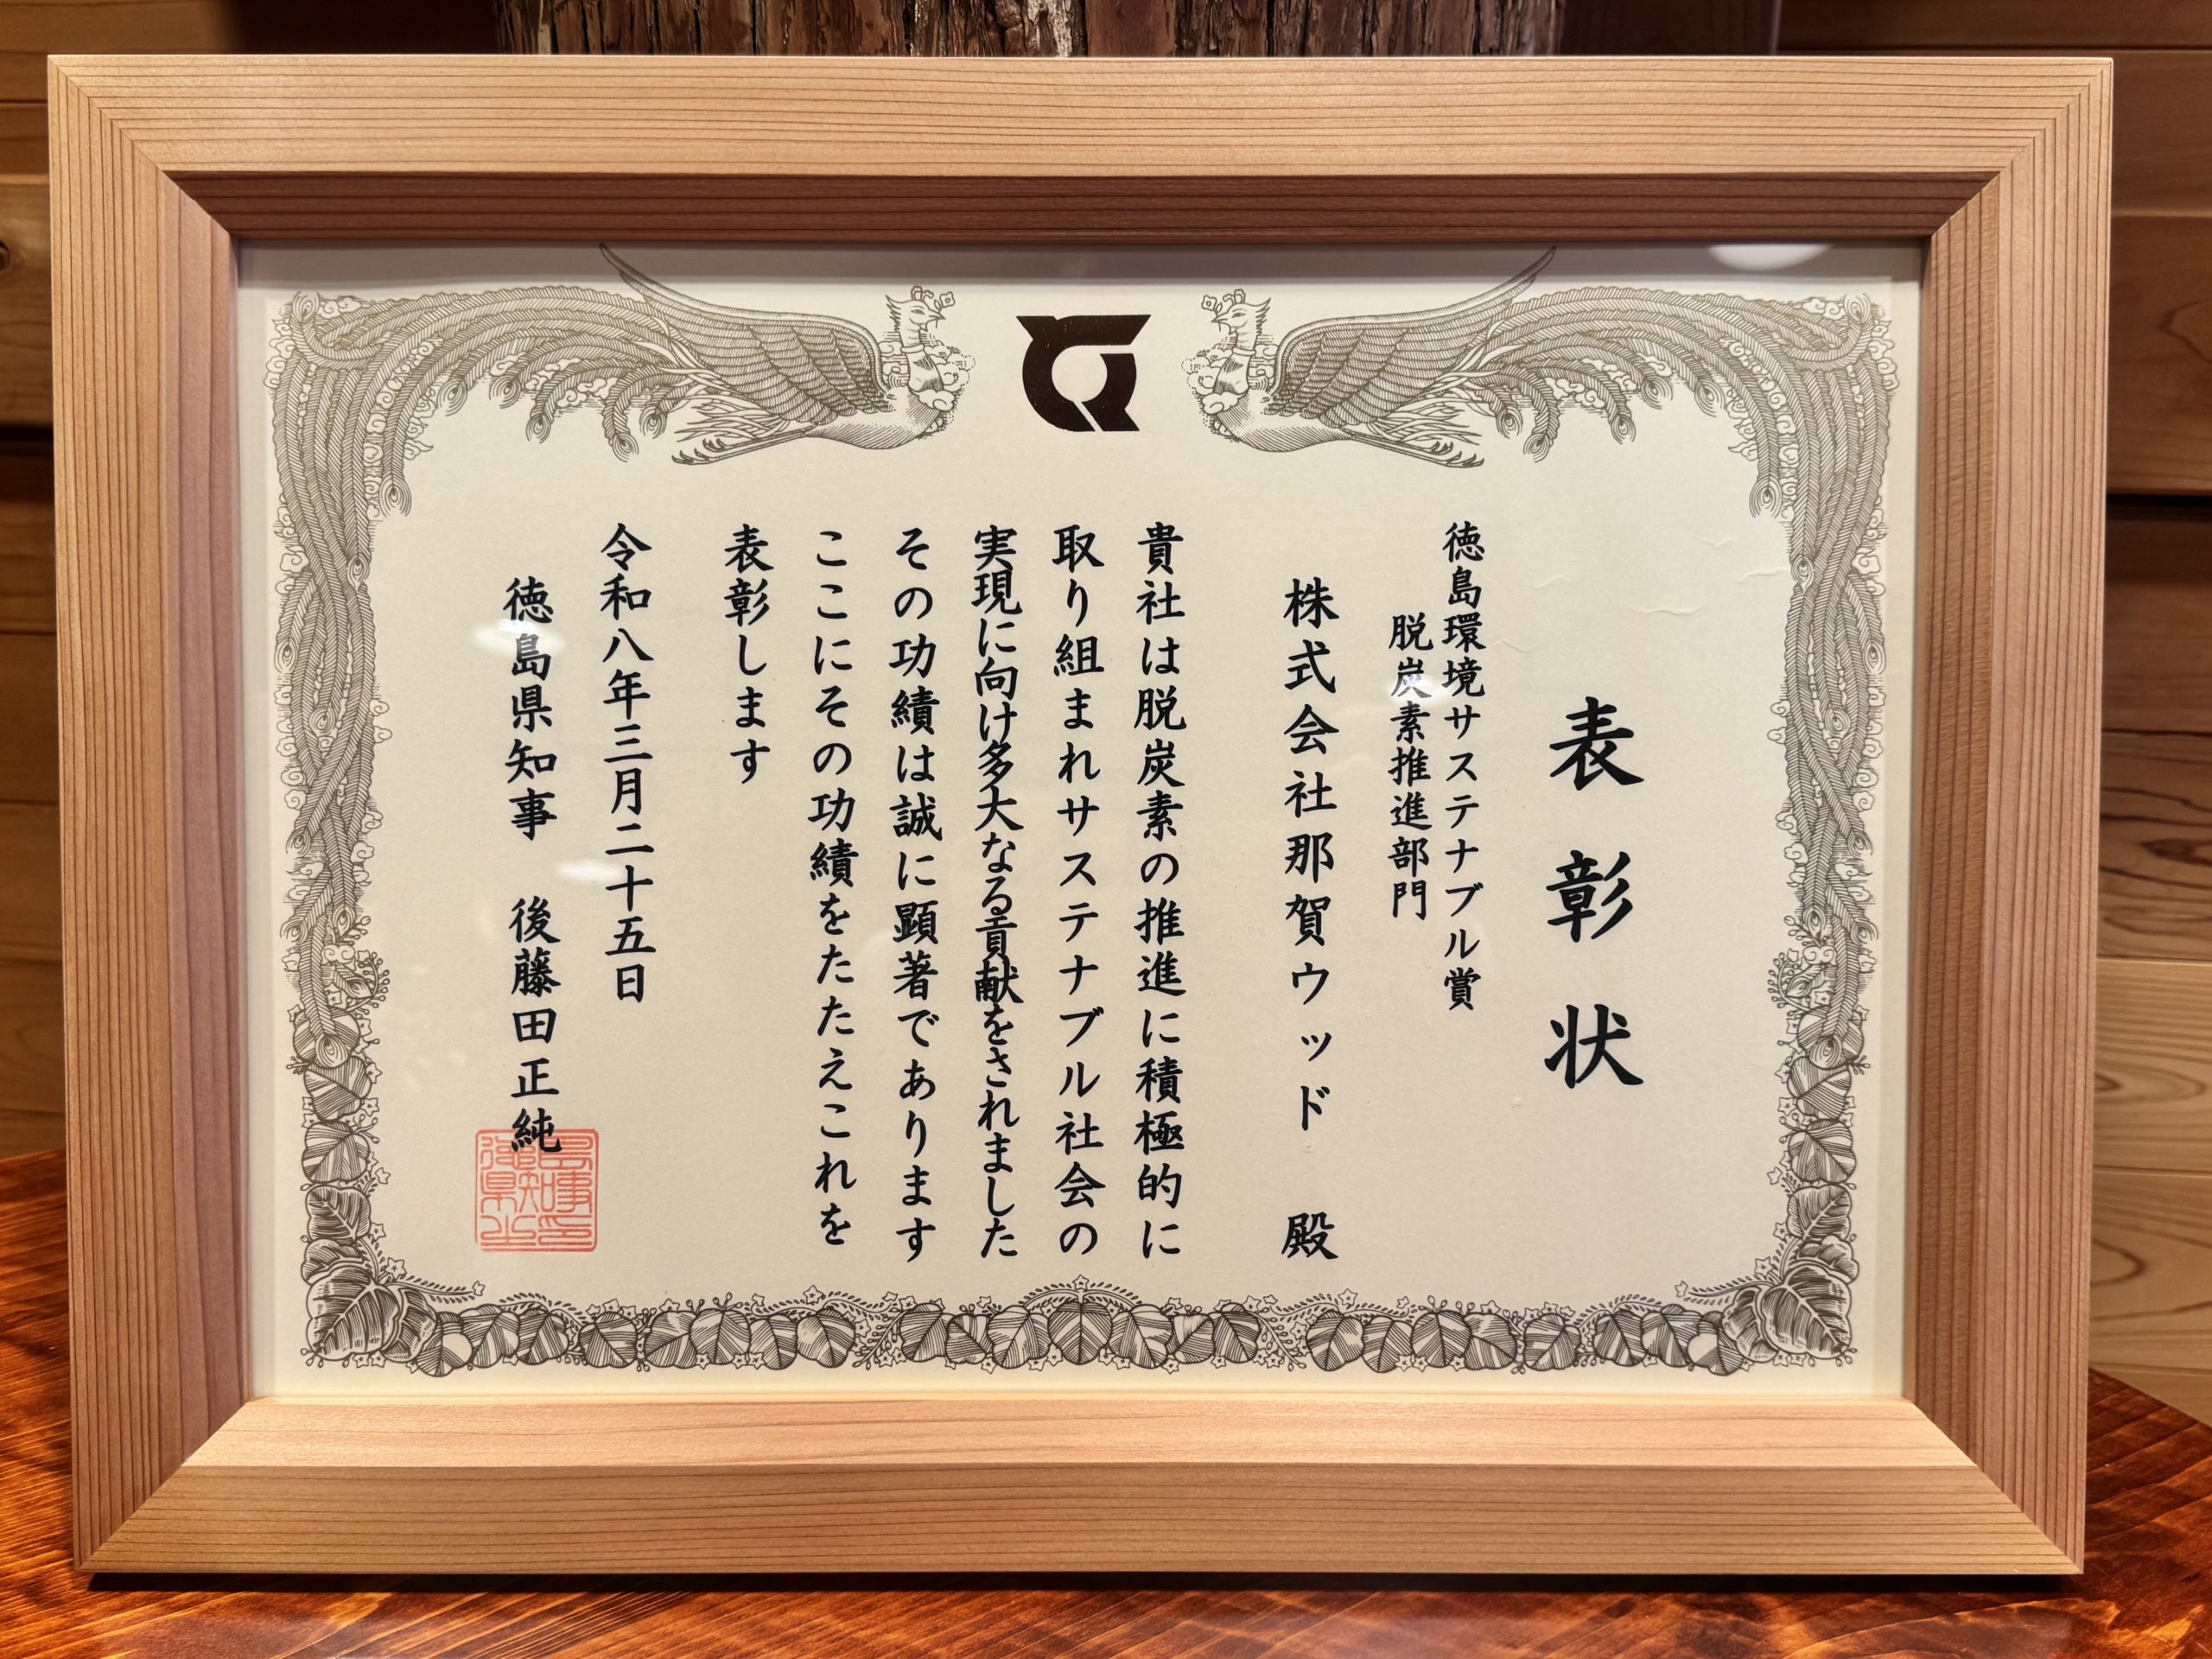 表彰状
徳島環境サステナブル賞
脱炭素推進部門
株式会社那賀ウッド 殿
貴社は脱炭素の推進に積極的に
取り組まれサステナブル社会の
実現に向け多大なる貢献をされました
その功績は誠に顕著であります
ここにその功績をたたえこれを
表彰します
令和八年三月二十五日
徳島県知事 後藤田正純
徳島県知事之印